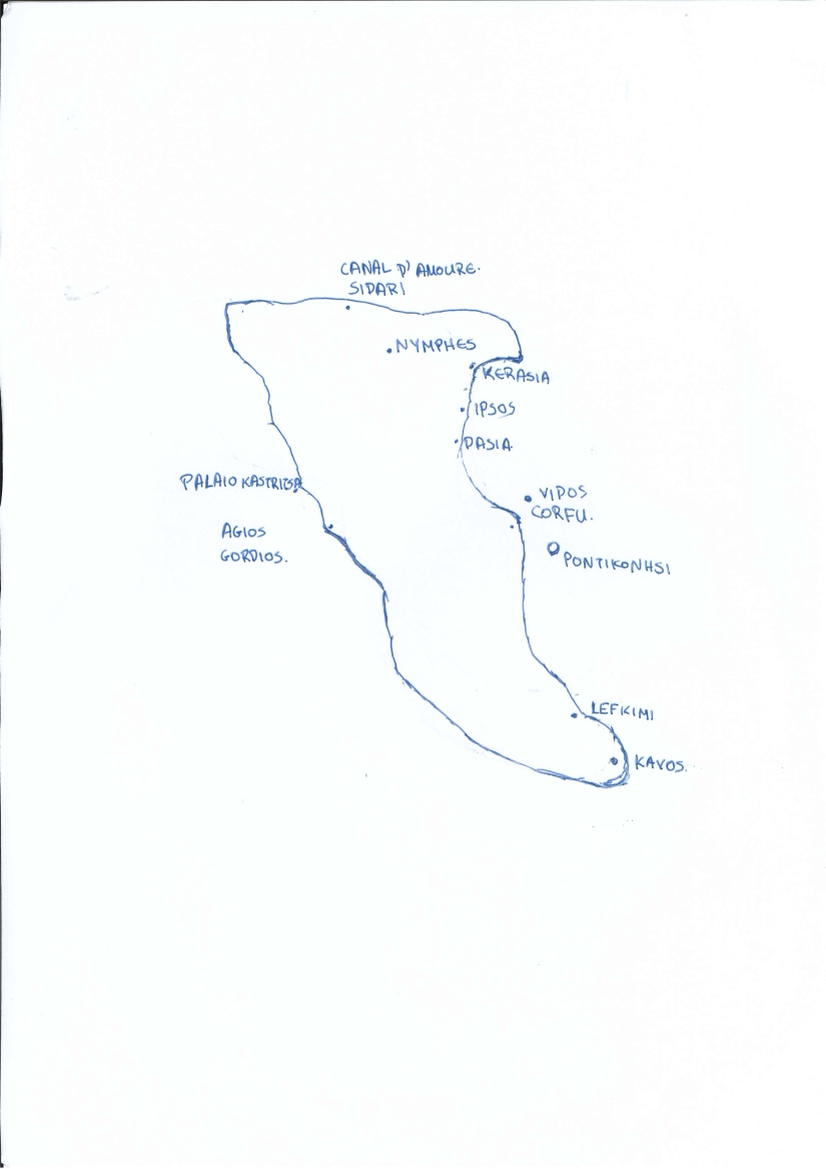 CANAL D' AMOURE.
SIDARI
NYMPHES
KERASIA
IPSOS
DASIA
PALAIO KASTRITSA
VIDOS
CORFU.
AGIOS
GORDIOS.
PONTIKONHSI
LEFKIMI
KAVOS.